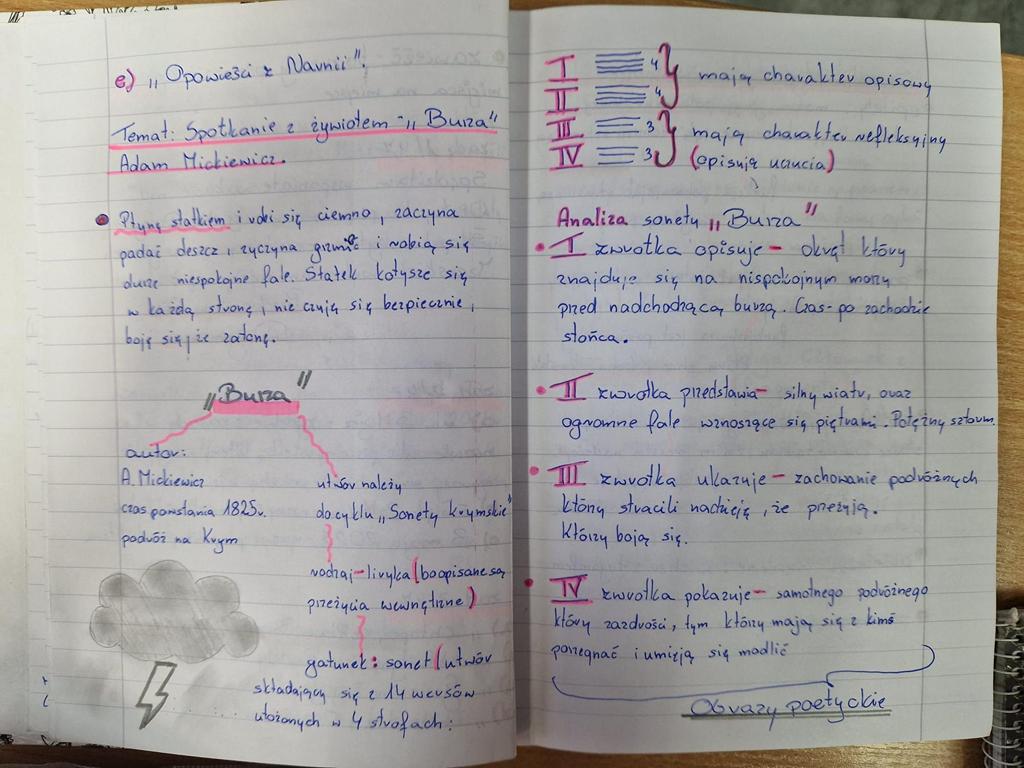 e) „Opowieści z Narnii".
Temat: Spotkanie z żywiotem - „Burza"
Adam Mickiewicz.
Płynę statkiem i robi się ciemno, zaczyna
padać deszcz, zyczyna grzmieć i robią się
duże niespokojne fale. Statek kołysze się
w każdą stronę, nie czują się bezpiecznie,
boję się, że zatonę.
„Burza"
autor:
A. Mickiewicz
czas powstania 1825r.
podróż na Krym
utwór należy
do cyklu „Sonety krymskie"
rodzaj - liryka (bo opisane są
przeżycia wewnętrzne)
gatunek: sonet (utwór
składający się z 14 wersów
ułożonych w 4 strofach:
I 4
II 4
mają charakter opisowy
III 3
IV 3
mają charakter refleksyjny
(opisują uczucia)
Analiza sonetu „Burza"
I zwrotka opisuje - okręt który
znajduje się na nispokojnym morzu
przed nadchodzącą burzą. Czas - po zachodzie
słońca.
II zwrotka przedstawia - silny wiatr, oraz
ogromne fale wznoszące się piętrami. Potężny sztorm.
III zwrotka ukazuje - zachowanie podróżnych
którzy stracili nadzieję, że przeżyją.
Którzy boją się.
IV zwrotka pokazuje - samotnego podróżnego
który zazdrości, tym którzy mają się z kimś
porzegnać i umieją się modlić
Obrazy poetyckie